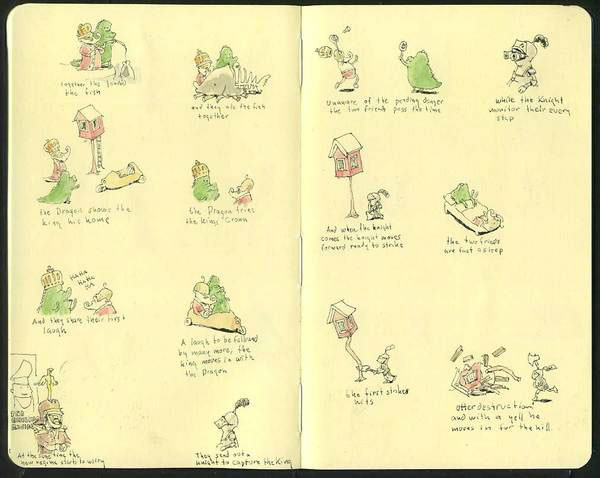 together the
the fish
and they ate the fish
together
the Dragon shows the
king his home
the Dragon tries
the kings Crown
HAHA
HAHA
HA
And they share their first
laugh
A laugh to be followed
by many more, the
king moves in with
the Dragon
At the same time the
new regime starts to worry
They send out a
knight to capture the King
Unaware of the pending danger
the two friends pass the time
While the Knight
monitor their every
step
And when the knight
comes the knight moves
forward ready to strike
the two friends
are fast asleep
the first strike
hits
otter destruction
and with a yell he
moves in for the kill